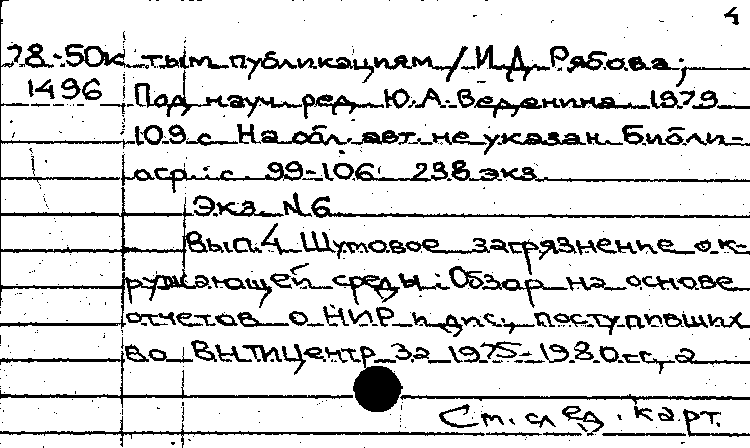 4
78-50к тым публикациям / И.Д. Рябова;
1496 Под науч. ред. Ю.А. Веденина 1979
109 с На обл. авт. не указан. Библи-
огр.: с. 99-106 238 экз.
Экз. N 6
Вып. 4 Шумовое загрязнение ок-
ружающей среды: Обзор на основе
отчетов о НИР и дис., поступивших
во ВНТИЦентр за 1975-1980 гг., а
См. след. карт.